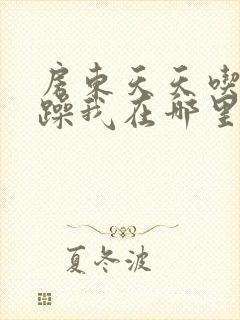 房东天天喫
躁我在哪里
夏冬波